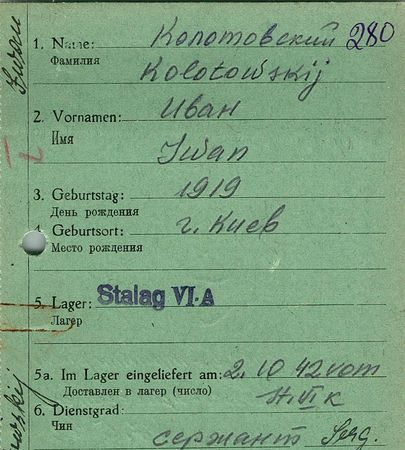 1. Name: Колотовский 280
Фамилия
Kolotowskij
2. Vornamen: Иван
Имя
Iwan
3. Geburtstag: 1919
День рождения
4. Geburtsort: г. Киев
Место рождения
5. Lager: Stalag VI-A
Лагер
5a. Im Lager eingeliefert am: 2. 10 42 vom
Доставлен в лагер (число) VI K
6. Dienstgrad:
Чин
сержант Serg.